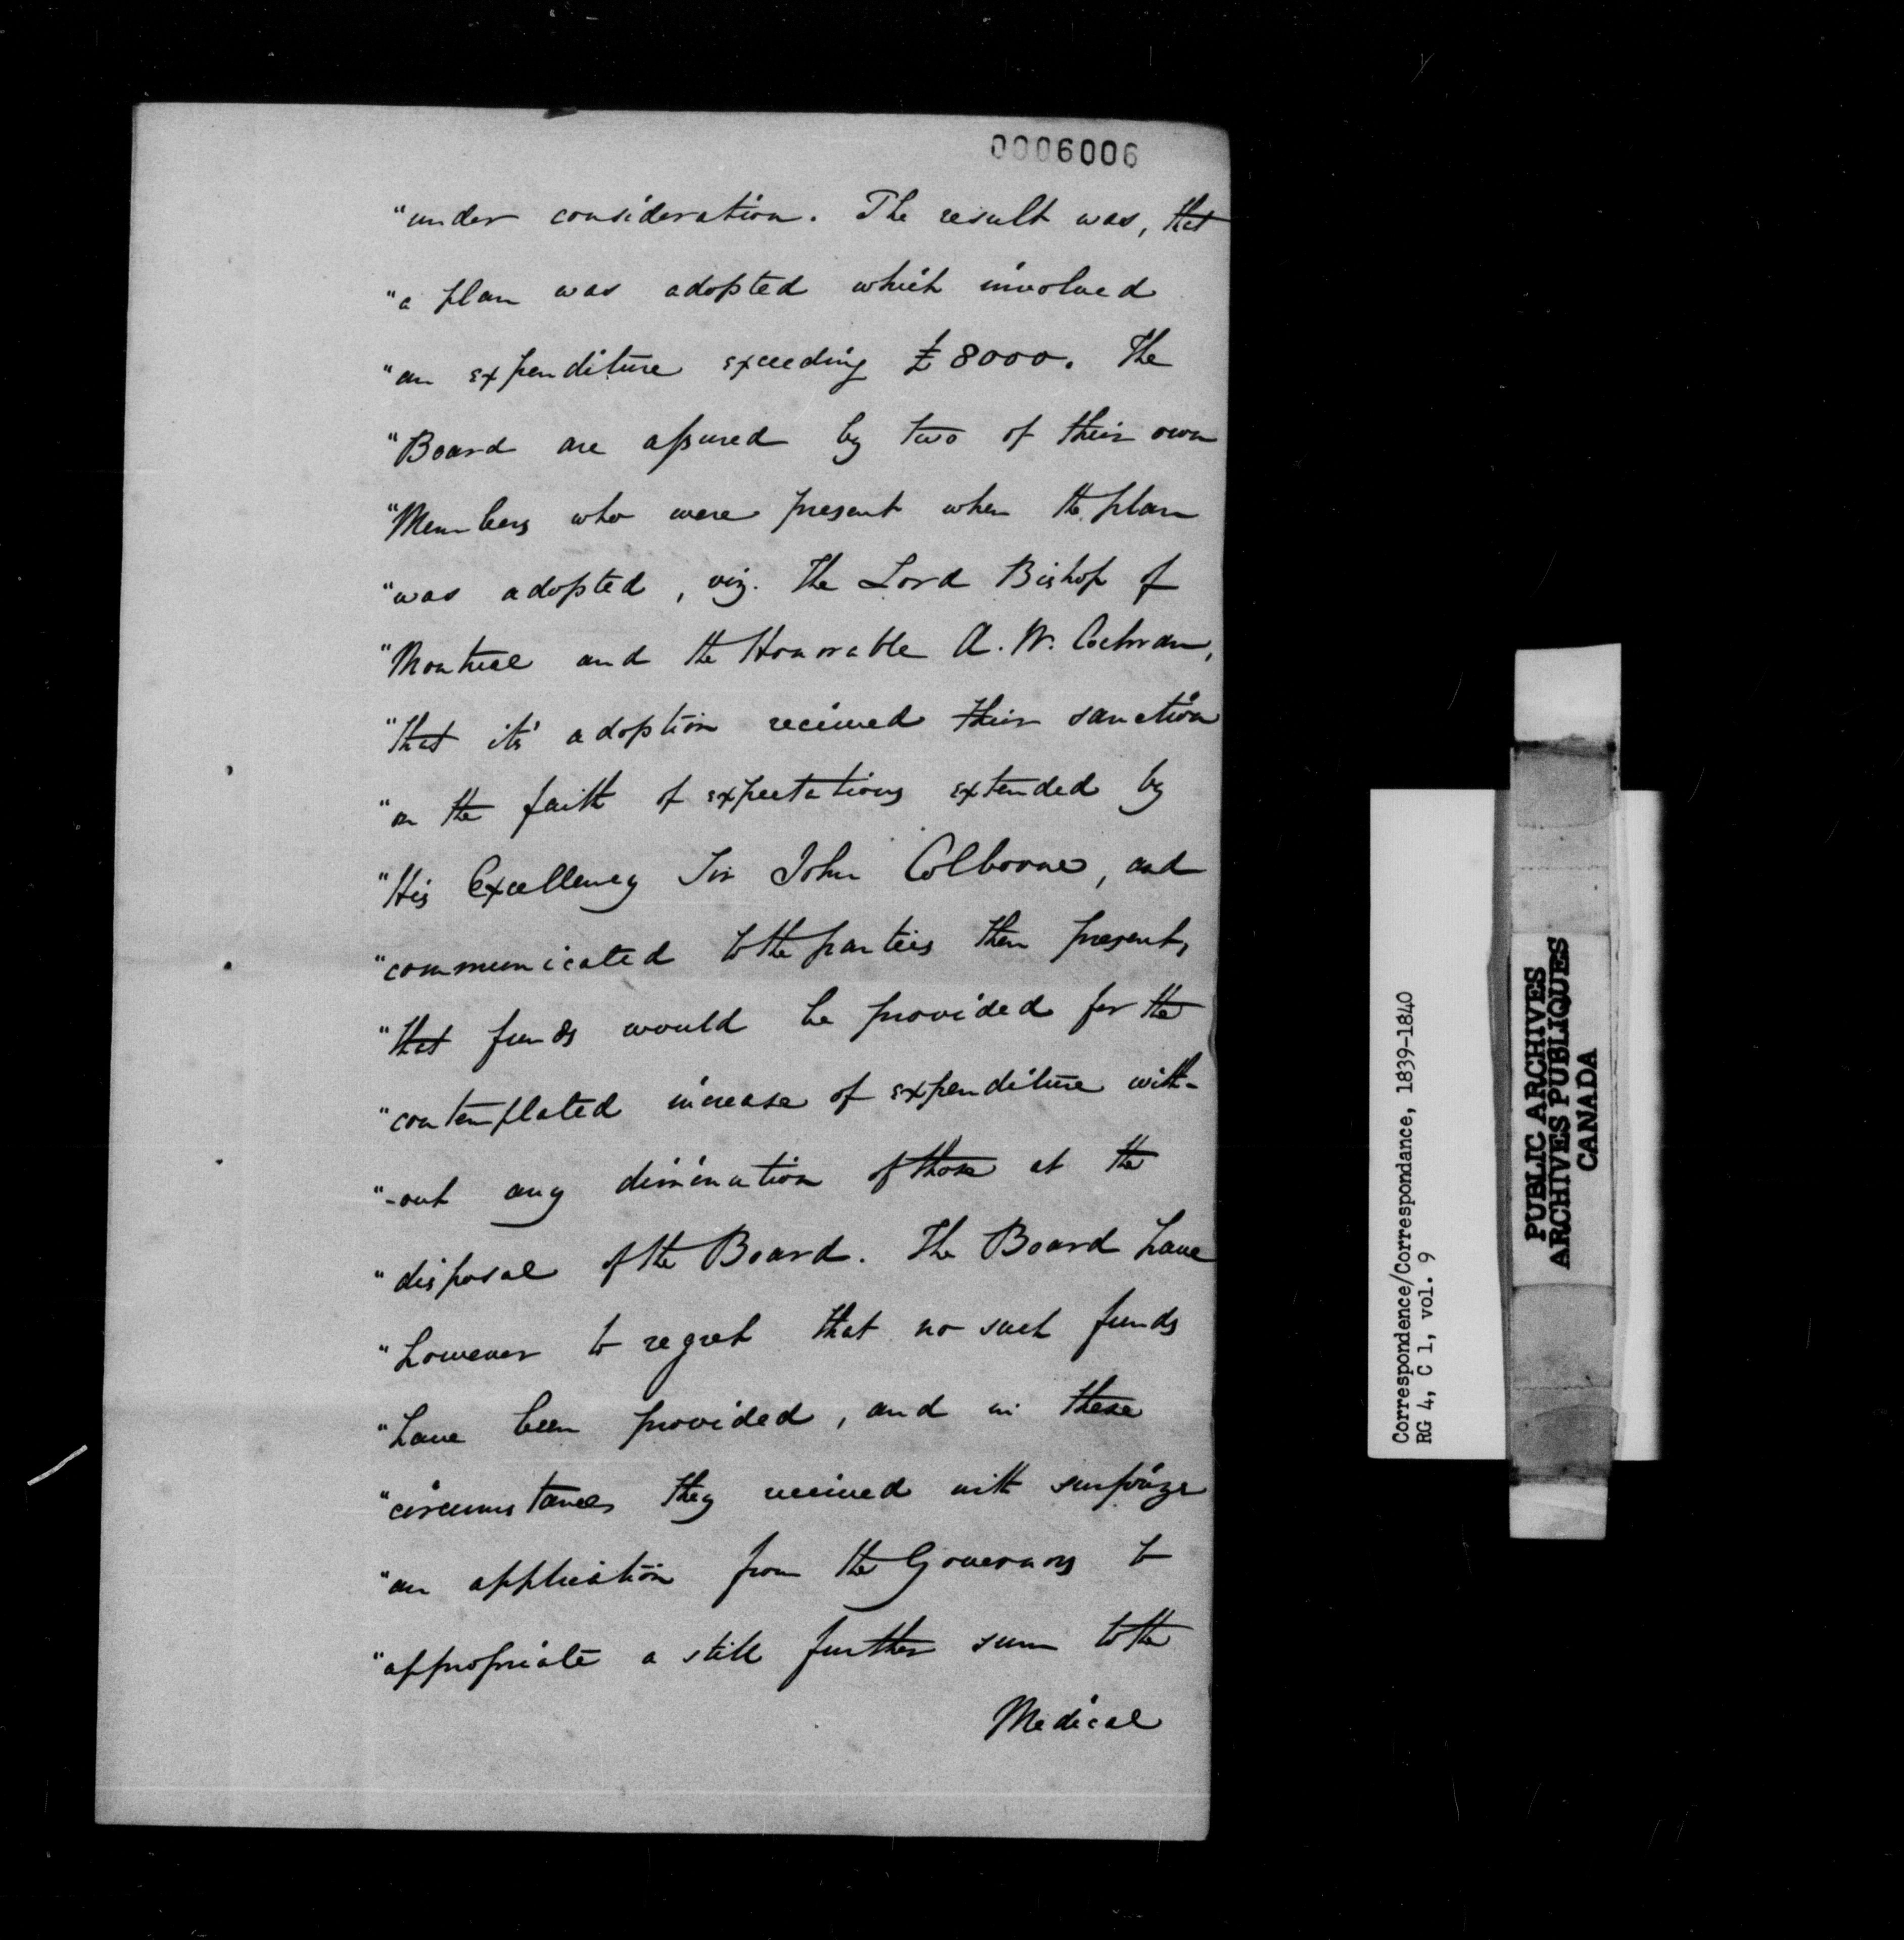 0006006
"under consideration. The result was, that
"a plan was adopted which involved
"an expenditure exceeding £8000. The
"Board are assured by two of their own
"Members who were present when the plan
"was adopted, viz. The Lord Bishop of
"Montreal and the Honorable A. W. Cochran,
"that its' adoption received their sanction
"on the faith of expectations extended by
"His Excellency Sir John Colborne, and
"communicated to the parties then present,
"that funds would be provided for the
"contemplated increase of expenditure with-
"-out any diminution of those at the
"disposal of the Board. The Board have
"however to regret that no such funds
"have been provided, and in these
"circumstances they received with surprize
"an application from the Governors to
"appropriate a still further sum to the
Medical
Correspondence/Correspondance, 1839-1840
RG 4, C 1, vol. 9
PUBLIC ARCHIVES
ARCHIVES PUBLIQUES
CANADA